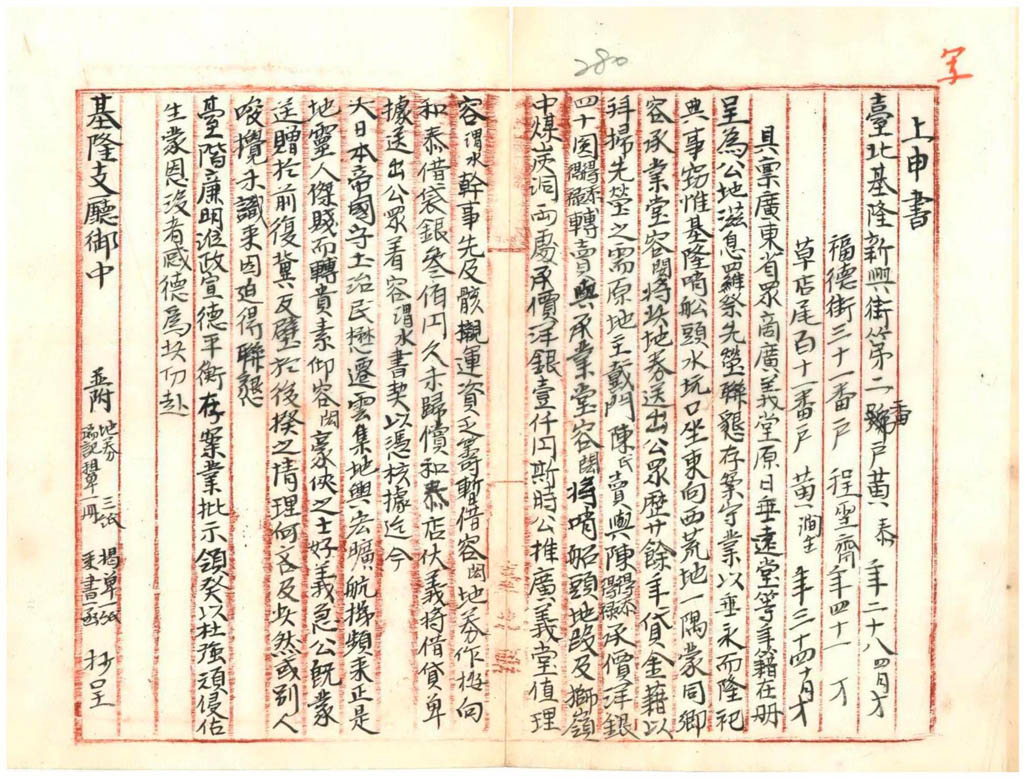 280
写
上申書
臺北基隆新興街第二番戶黃泰 年二十八四月才
福德街三十一番戶 程聖齋 年四十一 才
草店尾百十一番戶 黃澗生 年三十四十月才
具稟廣東省眾商廣義堂原日垂遠堂等年籍在冊
呈為公地滋息羅祭先塋聯懇存案守業以垂永而隆祀
典事竊惟基隆哨船頭水坑口坐東向西荒地一隅蒙同鄉
容承業堂容閎將此地券送出公眾歷廿餘年貸金藉以
拜掃先塋之需原地主戴門陳氏賣與陳承價洋銀
四十圓轉賣與承業堂容閎將哨船頭地段及獅嶺
中煤炭洞兩處承價洋銀壹仟円斯時公推廣義堂值理
容渭水幹事先友骸櫬運資乏籌暫借容閎地券作按向
和泰借袋銀叁佰円久未歸償和泰店伙義將借貸單
據送出公眾着容渭水書契以憑核據迄今
大日本帝國守土治民懋遷雲集地輿宏曠航梯頻來正是
地靈人傑賤而轉貴素仰容閎豪俠之士好義急公既業
送贈於前復冀反璧於後揆之情理何言及此然或別人
唆攪未識來因迫得聯懇
臺階廉明涖政宣德平衡存案業批示領癸以杜強頑侵佔
生蒙恩沒者感德爲此切赴
基隆支廳御中 並附 地券 三紙 揭單一紙 抄呈